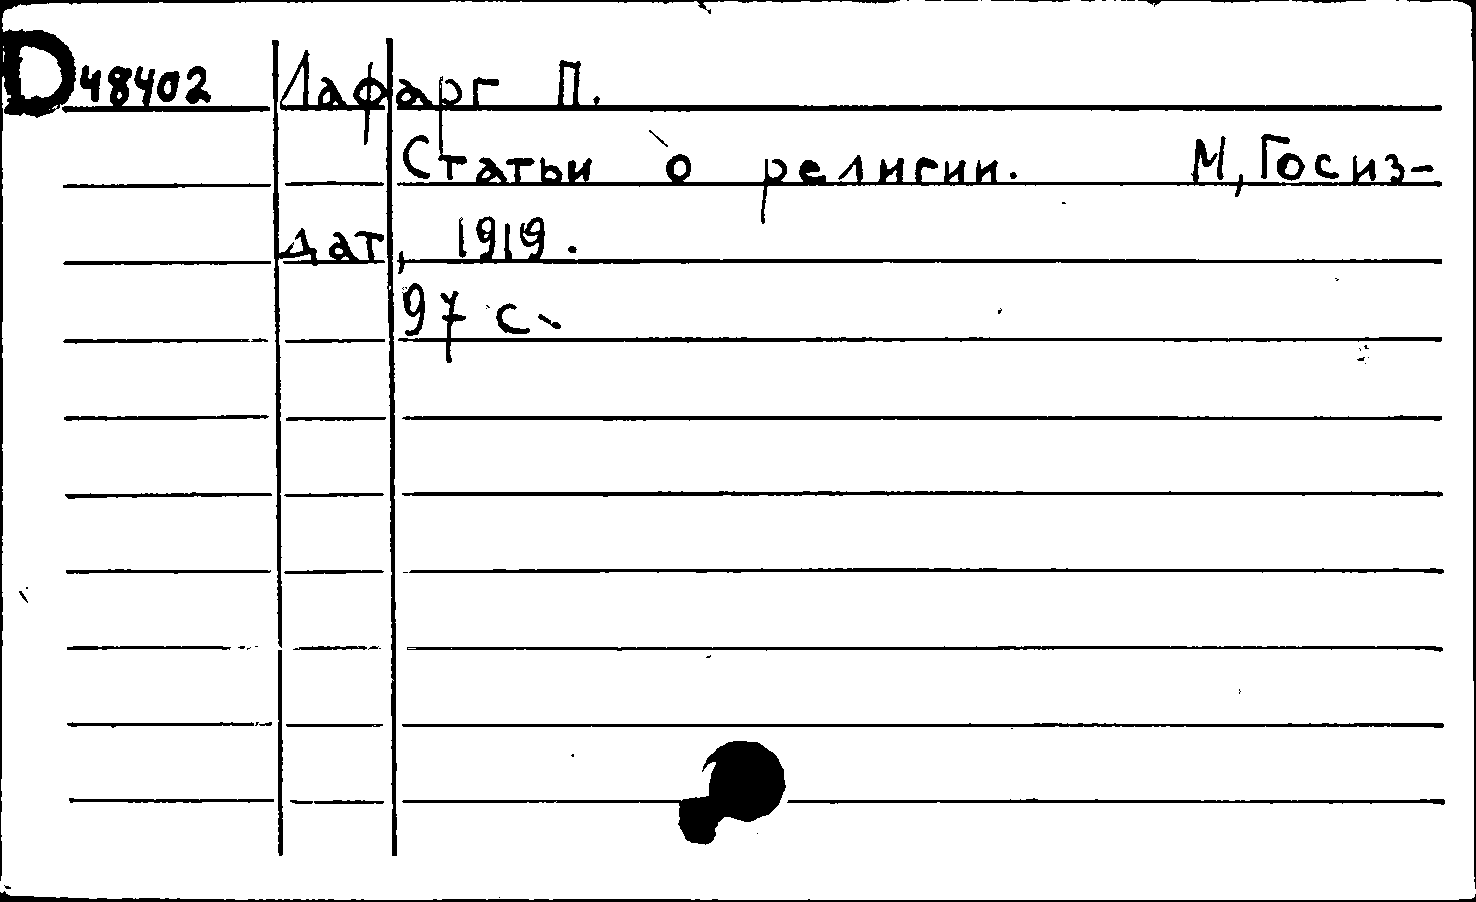 D48402 Лафарг П.
Статьи о религии. М, Госиз-
дат, 1919.
97 с.